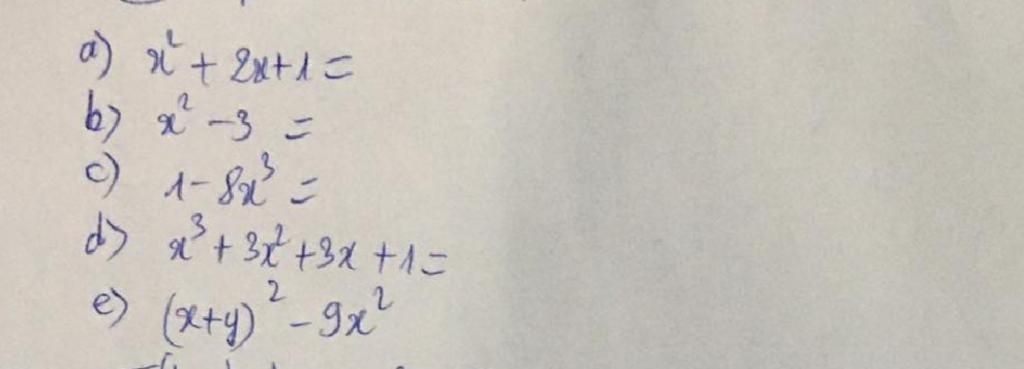 a) x² + 2x+1 =
b) x² - 3 =
c) 1- 8x³ =
d) x³ + 3x² +3x +1=
e) (x+y)² - 9x²